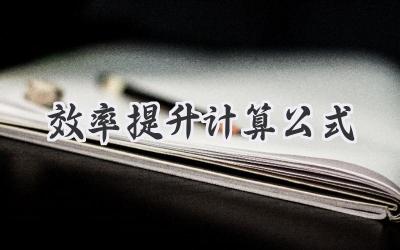 效率提升计算公式